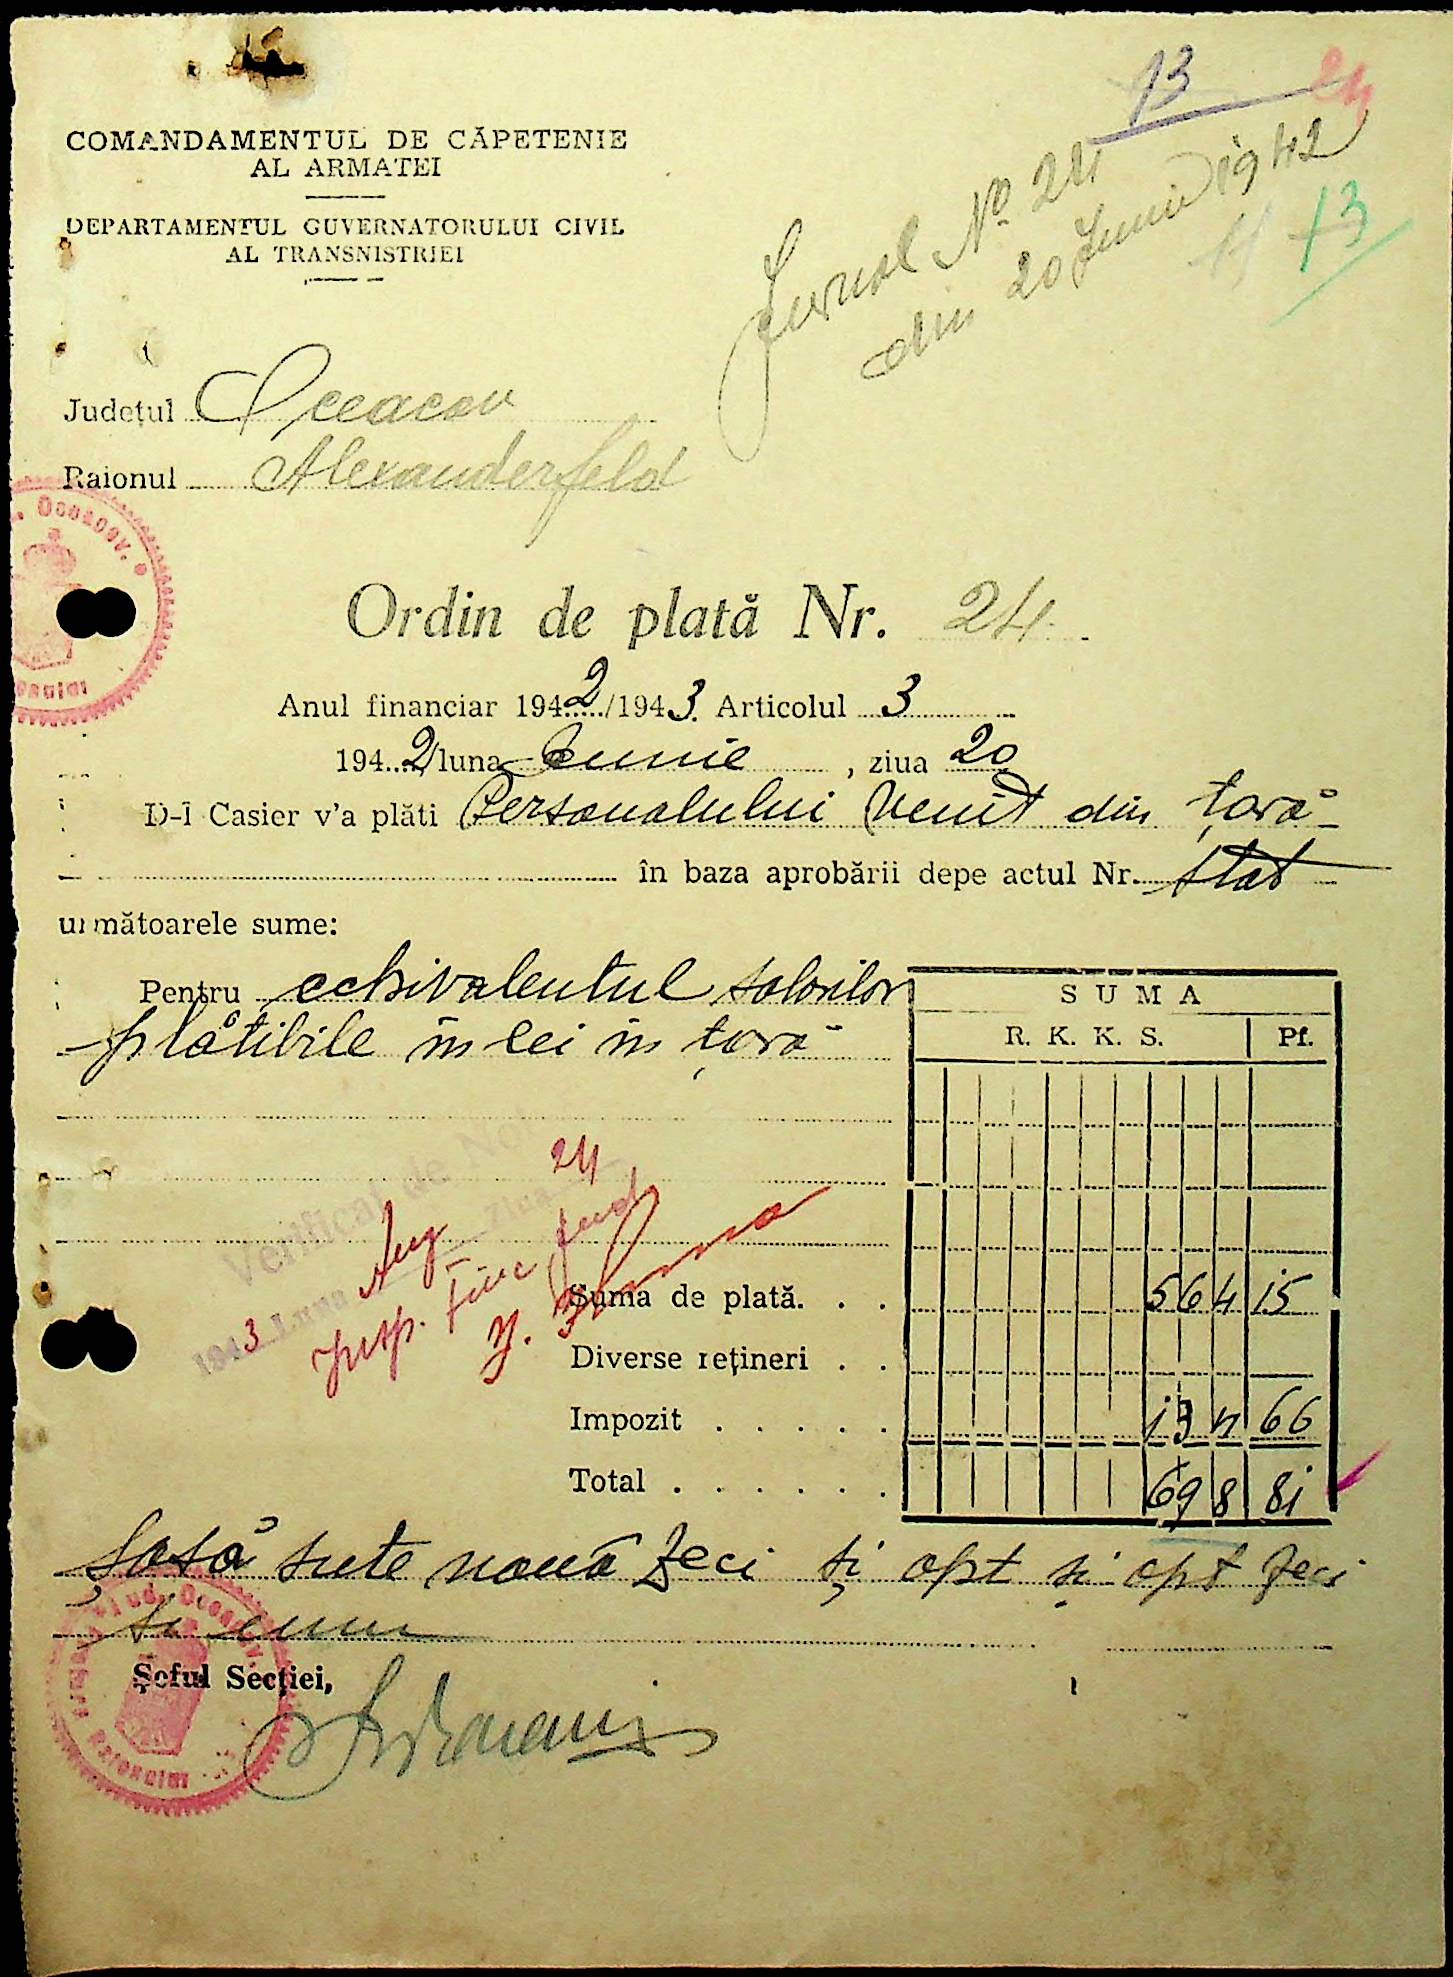 13
24
COMANDAMENTUL DE CĂPETENIE
AL ARMATEI
DEPARTAMENTUL GUVERNATORULUI CIVIL
AL TRANSNISTRIEI
Jurnal No. 24
din 20 Iunie 1942
13
Județul Oceacov
Raionul Alexanderfeld
Ordin de plată Nr. 24
Anul financiar 1942/1943. Articolul 3
1942/luna Iunie, ziua 20
D-l Casier v'a plăti Personalului venit din țară
în baza aprobării depe actul Nr. stat
următoarele sume:
Pentru echivalentul salariilor
plătibile în lei în țară
SUMA
R. K. K. S. Pf.
Verificat de Noi
24
1943 Luna Aug ziua
Insp. Fin. Jud
Suma de plată. . . 564 15
Diverse rețineri . . —
Impozit . . . . . 134 66
Total . . . . . . 698 81
Șasă sute nouă zeci și opt și opt zeci
și unu
Șeful Secției,
Jud. Oceacov.
Raionului